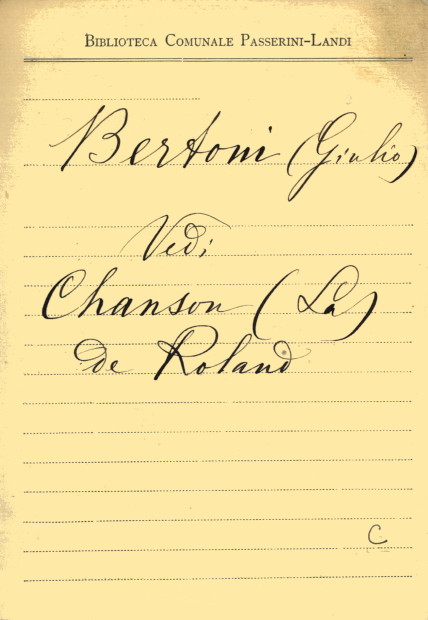 Biblioteca Comunale Passerini-Landi
Bertoni (Giulio)
Vedi
Chanson (La)
de Roland
C